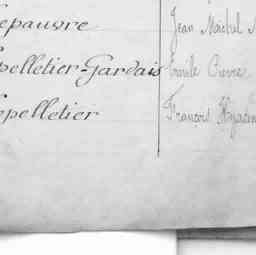 epauvre Jean Michel
pelletier-Gardais Emile
epelletier François Hyacin